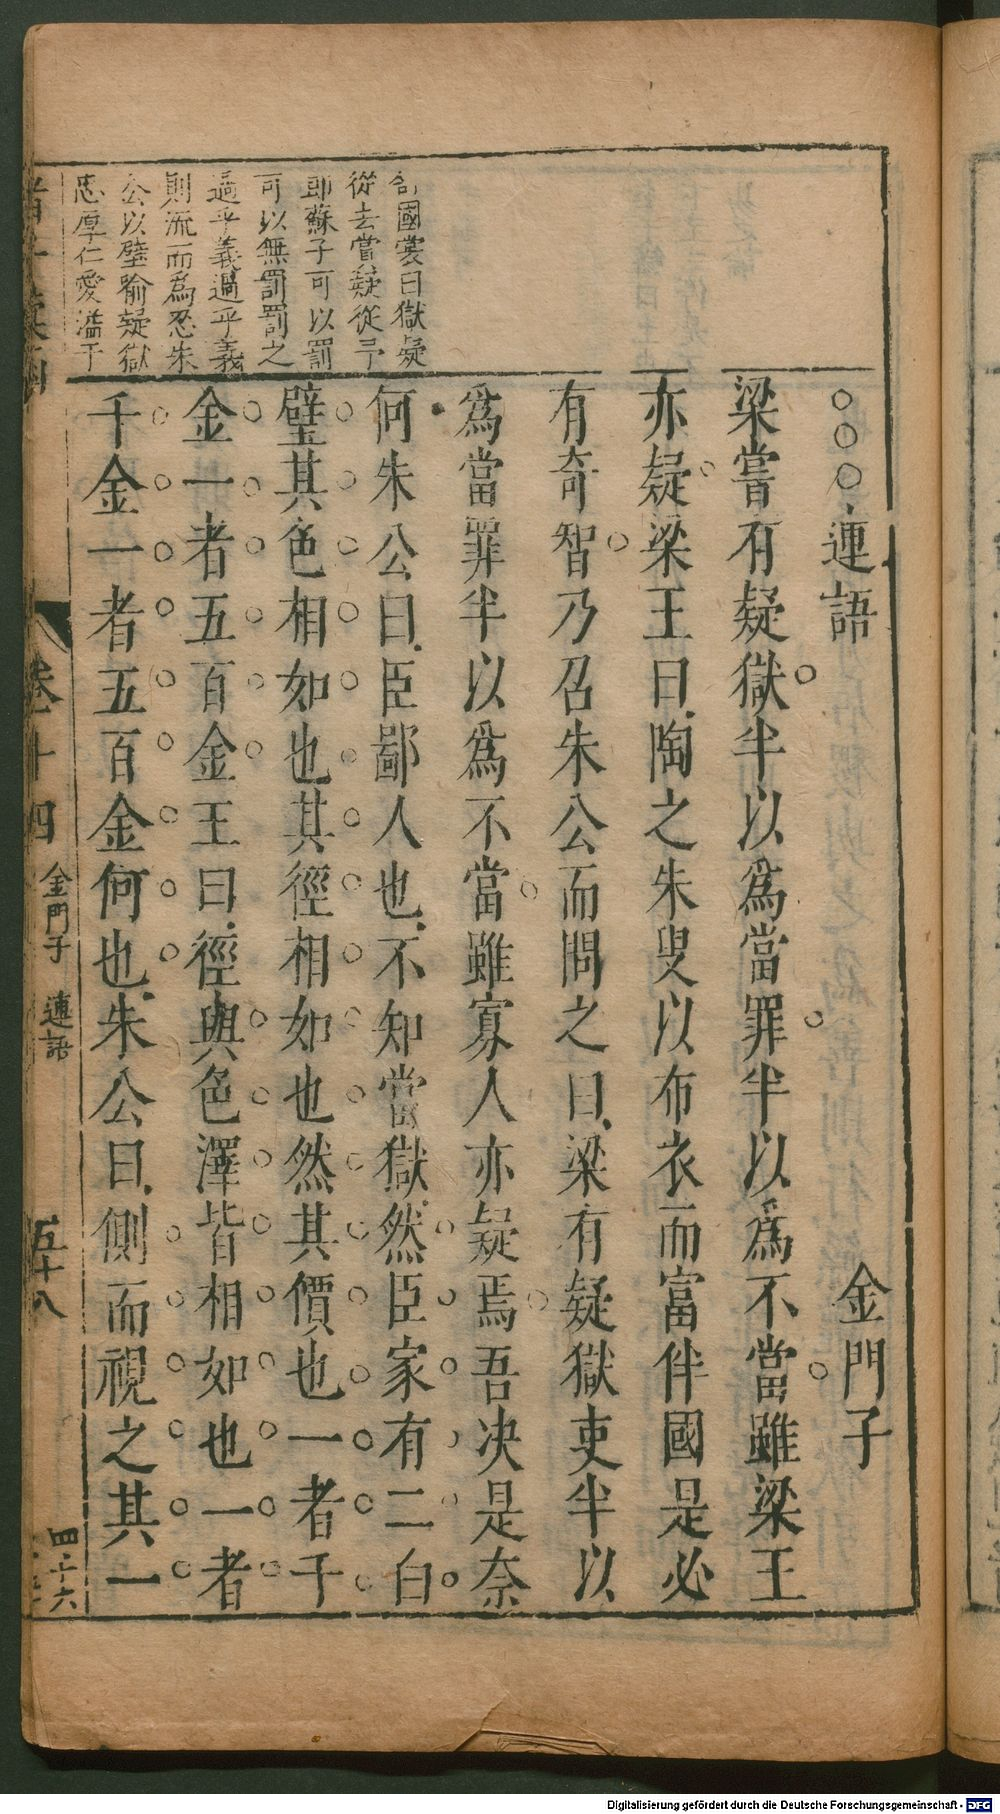 連語 金門子
梁嘗有疑獄半以爲當罪半以爲不當雖梁王
亦疑梁王曰陶之朱叟以布衣而富侔國是必
有奇智乃召朱公而問之曰梁有疑獄吏半以
爲當罪半以爲不當雖寡人亦疑焉吾决是奈
何朱公曰臣鄙人也不知當獄然臣家有二白
璧其色相如也其徑相如也然其價也一者千
金一者五百金王曰徑與色澤皆相如也一者
千金一者五百金何也朱公曰側而視之其一
國裳曰獄疑
從去嘗疑從予
即蘇子可以罰
可以無罰罰之
過乎義過乎義
則流而爲忍朱
公以璧喻疑獄
忠厚仁愛溢于
卷二十四 金門子 連語 五十八
四十六
Digitalisierung gefördert durch die Deutsche Forschungsgemeinschaft - DFG